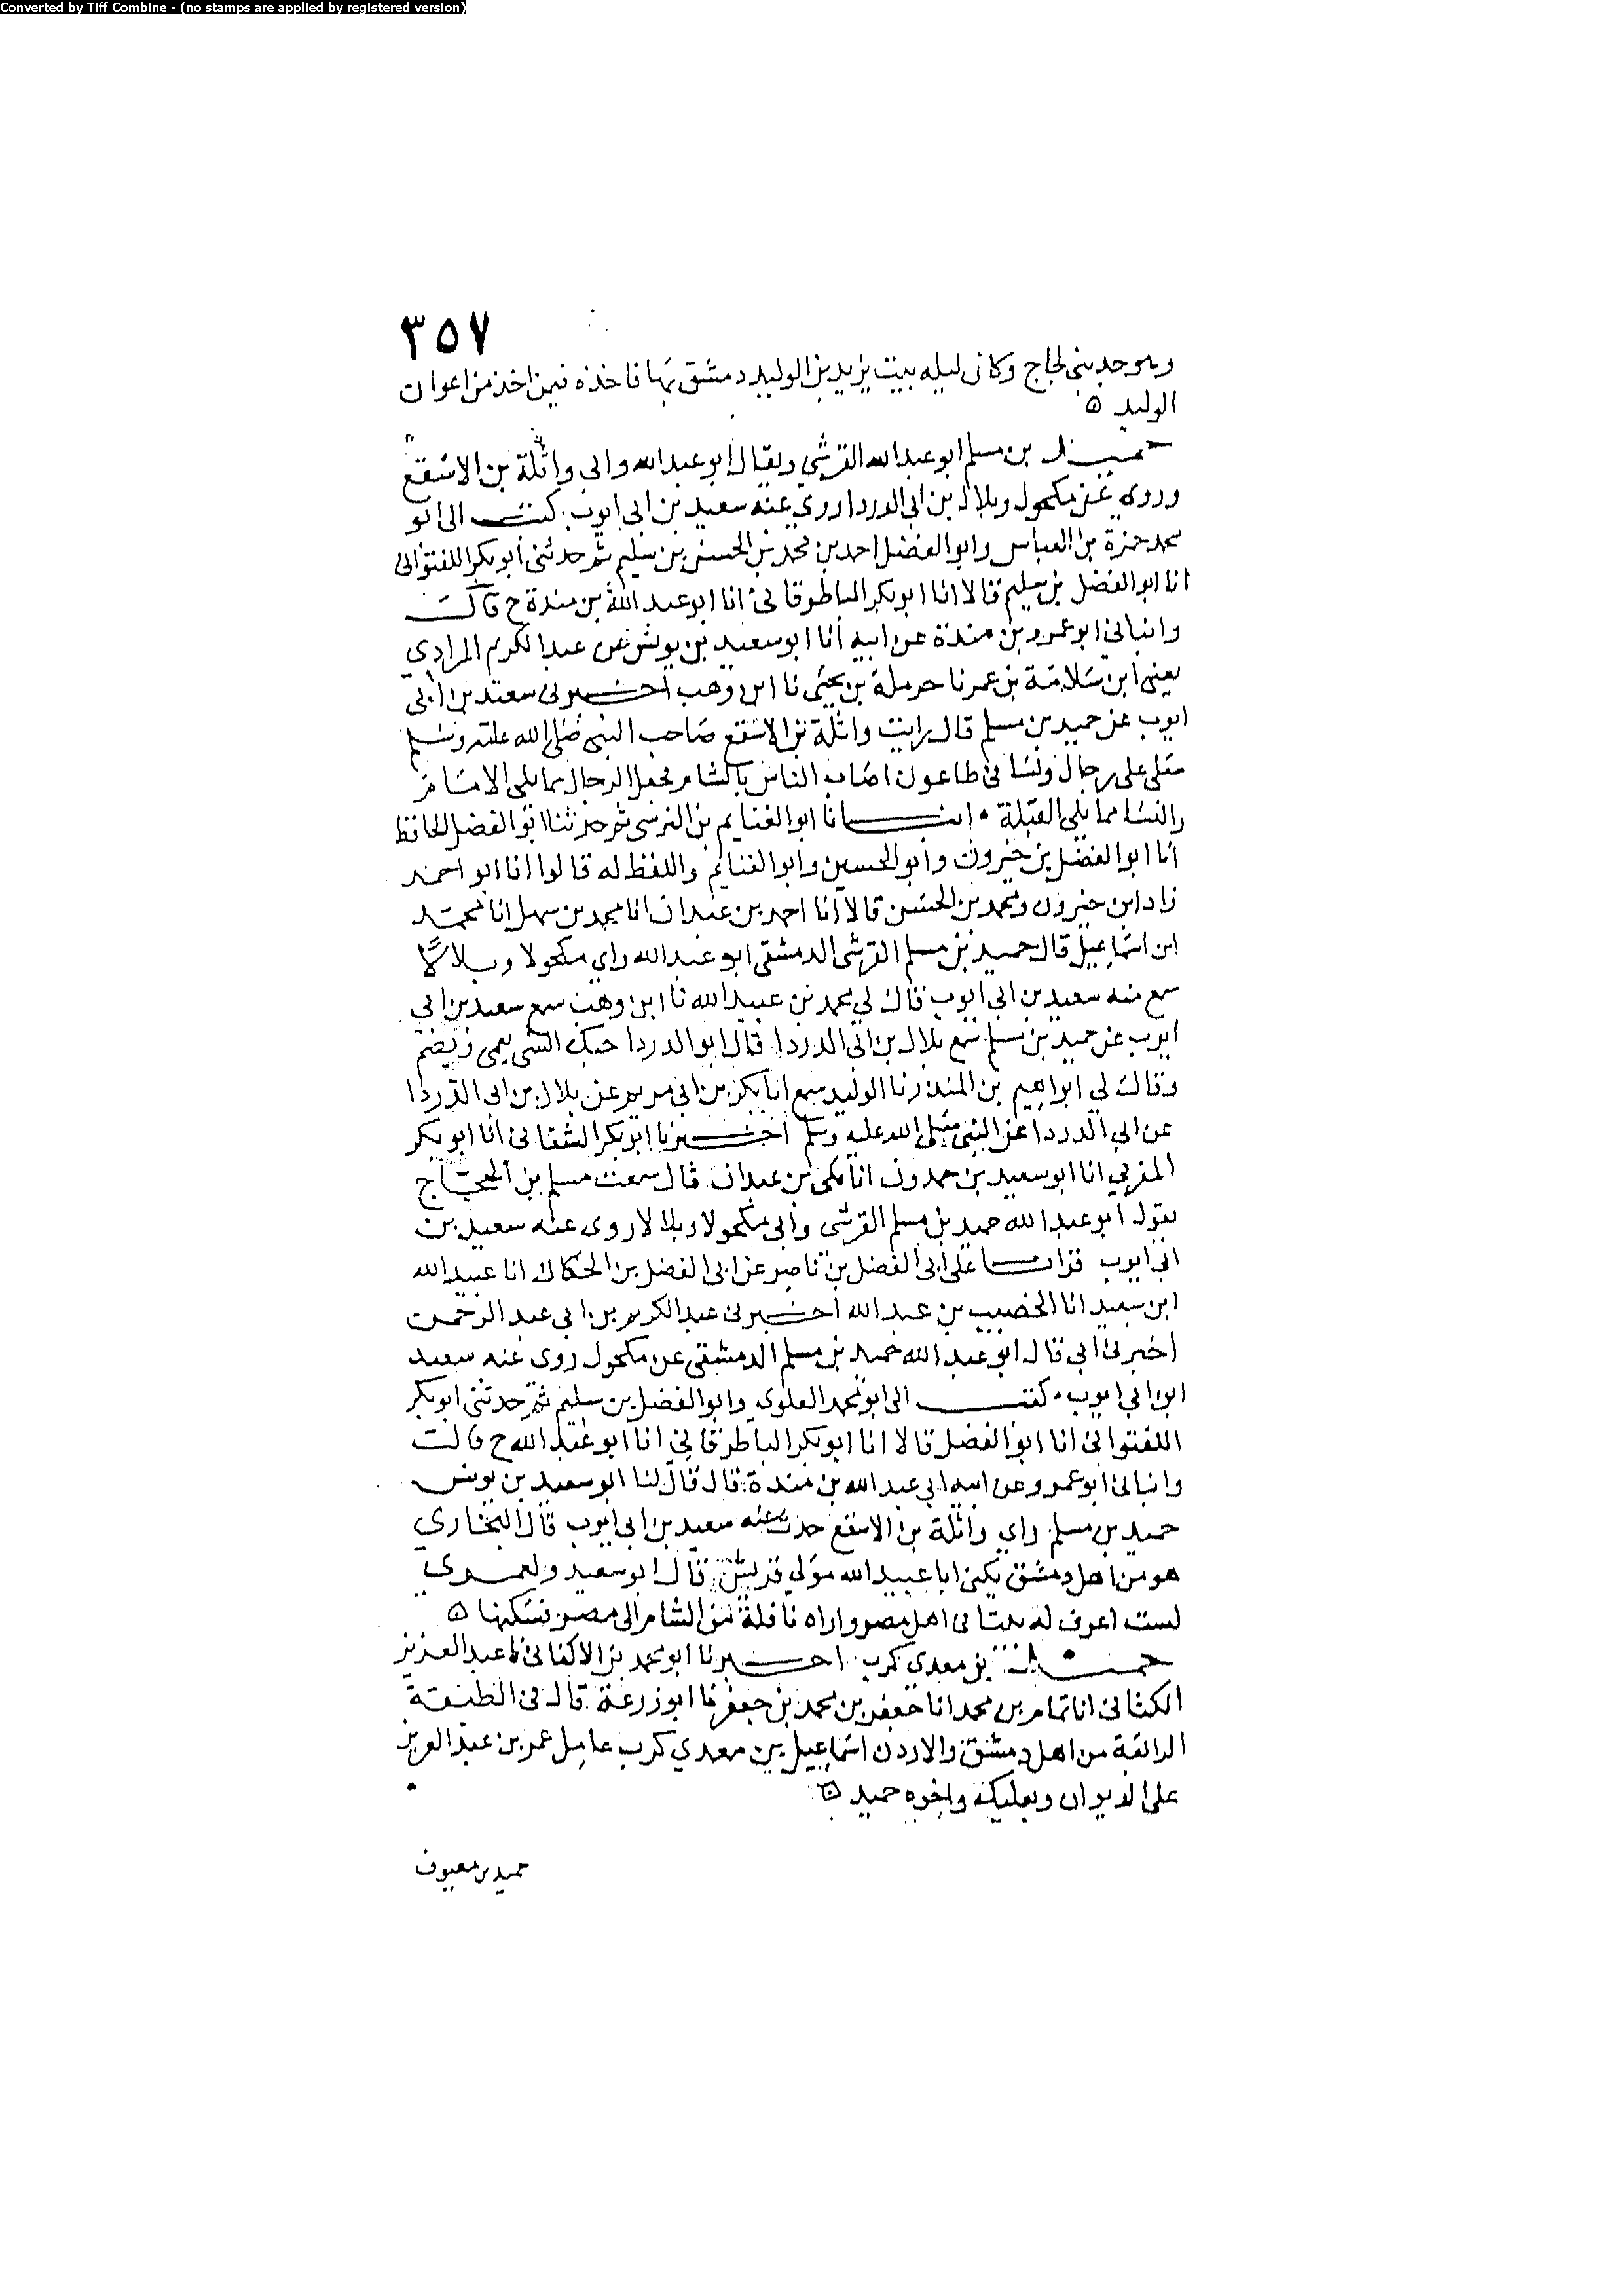 Converted by Tiff Combine - (no stamps are applied by registered version)
٣٥٧
وهو جد بني لحجاج وكان ليله بيت يزيد بن الوليد دمشق بها فاخذه فيمن اخذ من اعوان
الوليد ه
حميد بن مسلم ابو عبد الله القرشي ويقال ابو عبد الله راي واثلة بن الاسقع
وروى عن مكحول وبلال بن ابي الدردا روي عنه سعيد بن ابي ايوب كتب الى ابو
محمد حمزة بن العباس وابو الفضل احمد بن محمد بن الحسن بن سليم ثم حدثني ابو بكر اللفتواني
انا ابو الفضل بن سليم قالا انا ابو بكر الباطرقاني انا ابو عبد الله بن مندة ح قال
وانباني ابو عمرو بن مندة عن ابيه انا ابو سعيد بن يونس عبد الكريم المرادي
يعني ابن سلامة بن عمر نا حرملة بن يحيى نا ابن وهب اخبرني سعيد بن ابي
ايوب عن حميد بن مسلم قال رايت واثلة بن الاسقع صاحب النبي صلى الله عليه وسلم
صلى على رجال ونسا في طاعون اصاب الناس بالشام فجعل الرجال مما يلي الامام
والنسا مما يلي القبلة ۰ انبانا ابو الغنايم بن النرسي ثم حدثنا ابو الفضل الحافظ
انا ابو الفضل بن خيرون وابو الحسين وابو الغنايم واللفظ له قالوا انا ابو احمد
زاد ابن خيرون ومحمد بن الحسن قالا انا احمد بن عبدان انا محمد بن سهل انا محمد
ابن اسماعيل قال حميد بن مسلم القرشي الدمشقي ابو عبد الله راي مكحولا وبلالا
سمع منه سعيد بن ابي ايوب قال لي محمد بن عبيد الله نا ابن وهب سمع سعيد بن ابي
ايوب عن حميد بن مسلم سمع بلال بن ابي الدردا قال ابو الدردا حبك الشي يعمي ويصم
وقال لي ابراهيم بن المنذر نا الوليد سمع ابا بكر بن ابي مريم عن بلال بن ابي الدردا
عن ابي الدردا عن النبي صلى الله عليه وسلم اخبرنا ابو بكر الشقاني انا ابو بكر
المغربي انا ابو سعيد بن حمدون انا مكي بن عبدان قال سمعت مسلم بن الحجاج
يقول ابو عبد الله حميد بن مسلم القرشي راي مكحولا وبلالا روى عنه سعيد بن
ابي ايوب قرات على ابي الفضل بن ناصر عن ابي الفضل بن الحكاك انا عبيد الله
ابن سعيد انا الخصيب بن عبد الله اخبرني عبد الكريم بن ابي عبد الرحمن
اخبرني ابي قال ابو عبد الله حميد بن مسلم الدمشقي عن مكحول روى عنه سعيد
ابن ابي ايوب ۰ كتب الى ابو محمد العلوي وابو الفضل بن سليم ثم حدثني ابو بكر
اللفتواني انا ابو الفضل قالا انا ابو بكر الباطرقاني انا ابو عبد الله ح قال
وانباني ابو عمرو عن ابيه ابي عبد الله بن مندة قال قال لنا ابو سعيد بن يونس
حميد بن مسلم راي واثلة بن الاسقع حدث عنه سعيد بن ابي ايوب قال البخاري
هو من اهل دمشق يكنى ابا عبيد الله مولي قريش قال ابو سعيد ولعمري
لست اعرف له بيتا في اهل مصر واراه ناقلة من الشام الى مصر فسكنها ه
حميد بن معدي كرب اخبرنا ابو محمد بن الاكفاني نا عبد العزيز
الكتاني انا تمام بن محمد انا جعفر بن محمد بن جعفر نا ابو زرعة قال في الطبقة
الرابعة من اهل دمشق والاردن اسماعيل بن معدي كرب عامل عمر بن عبد العزيز
على الديوان وبعلبك واخوه حميد ه
حميد بن معيوف